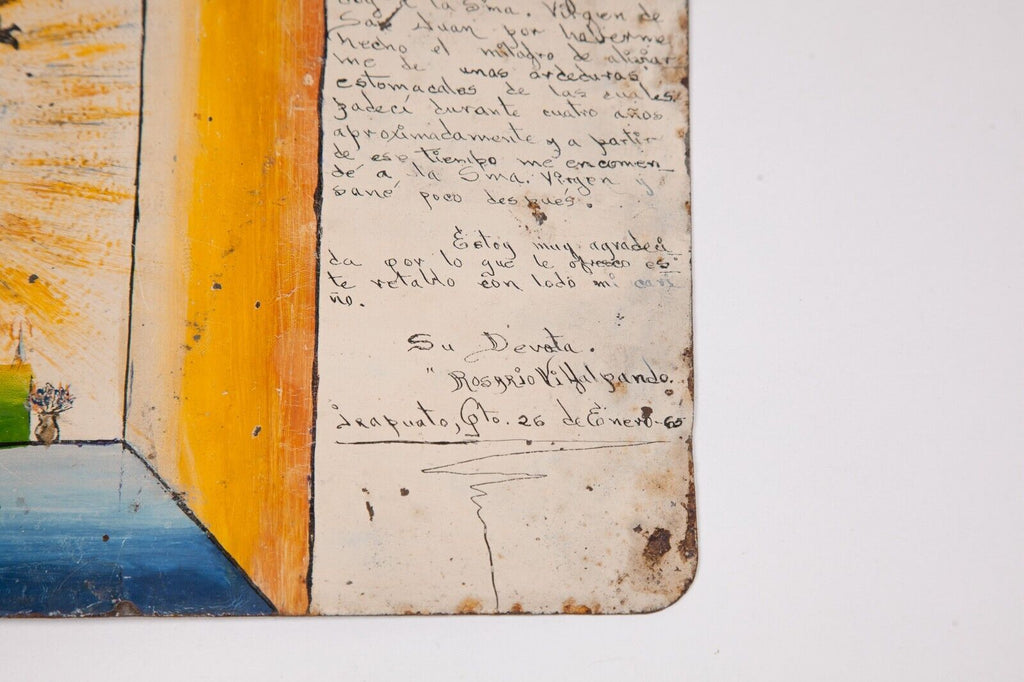 doy a la Sma. Virgen de
San Juan por haberme
hecho el milagro de aliviar
me de unas ardeduras
estomacales de las cuales
padecí durante cuatro años
aproximadamente y a partir
de ese tiempo me encomen
dé a la Sma. Virgen y
sané poco después.
Estoy muy agradeci
da por lo que le ofresco es
te retablo con todo mi cari
ño.
Su Devota.
" Rosario Villalpando.
irapuato, Gto. 26 de Enero-65